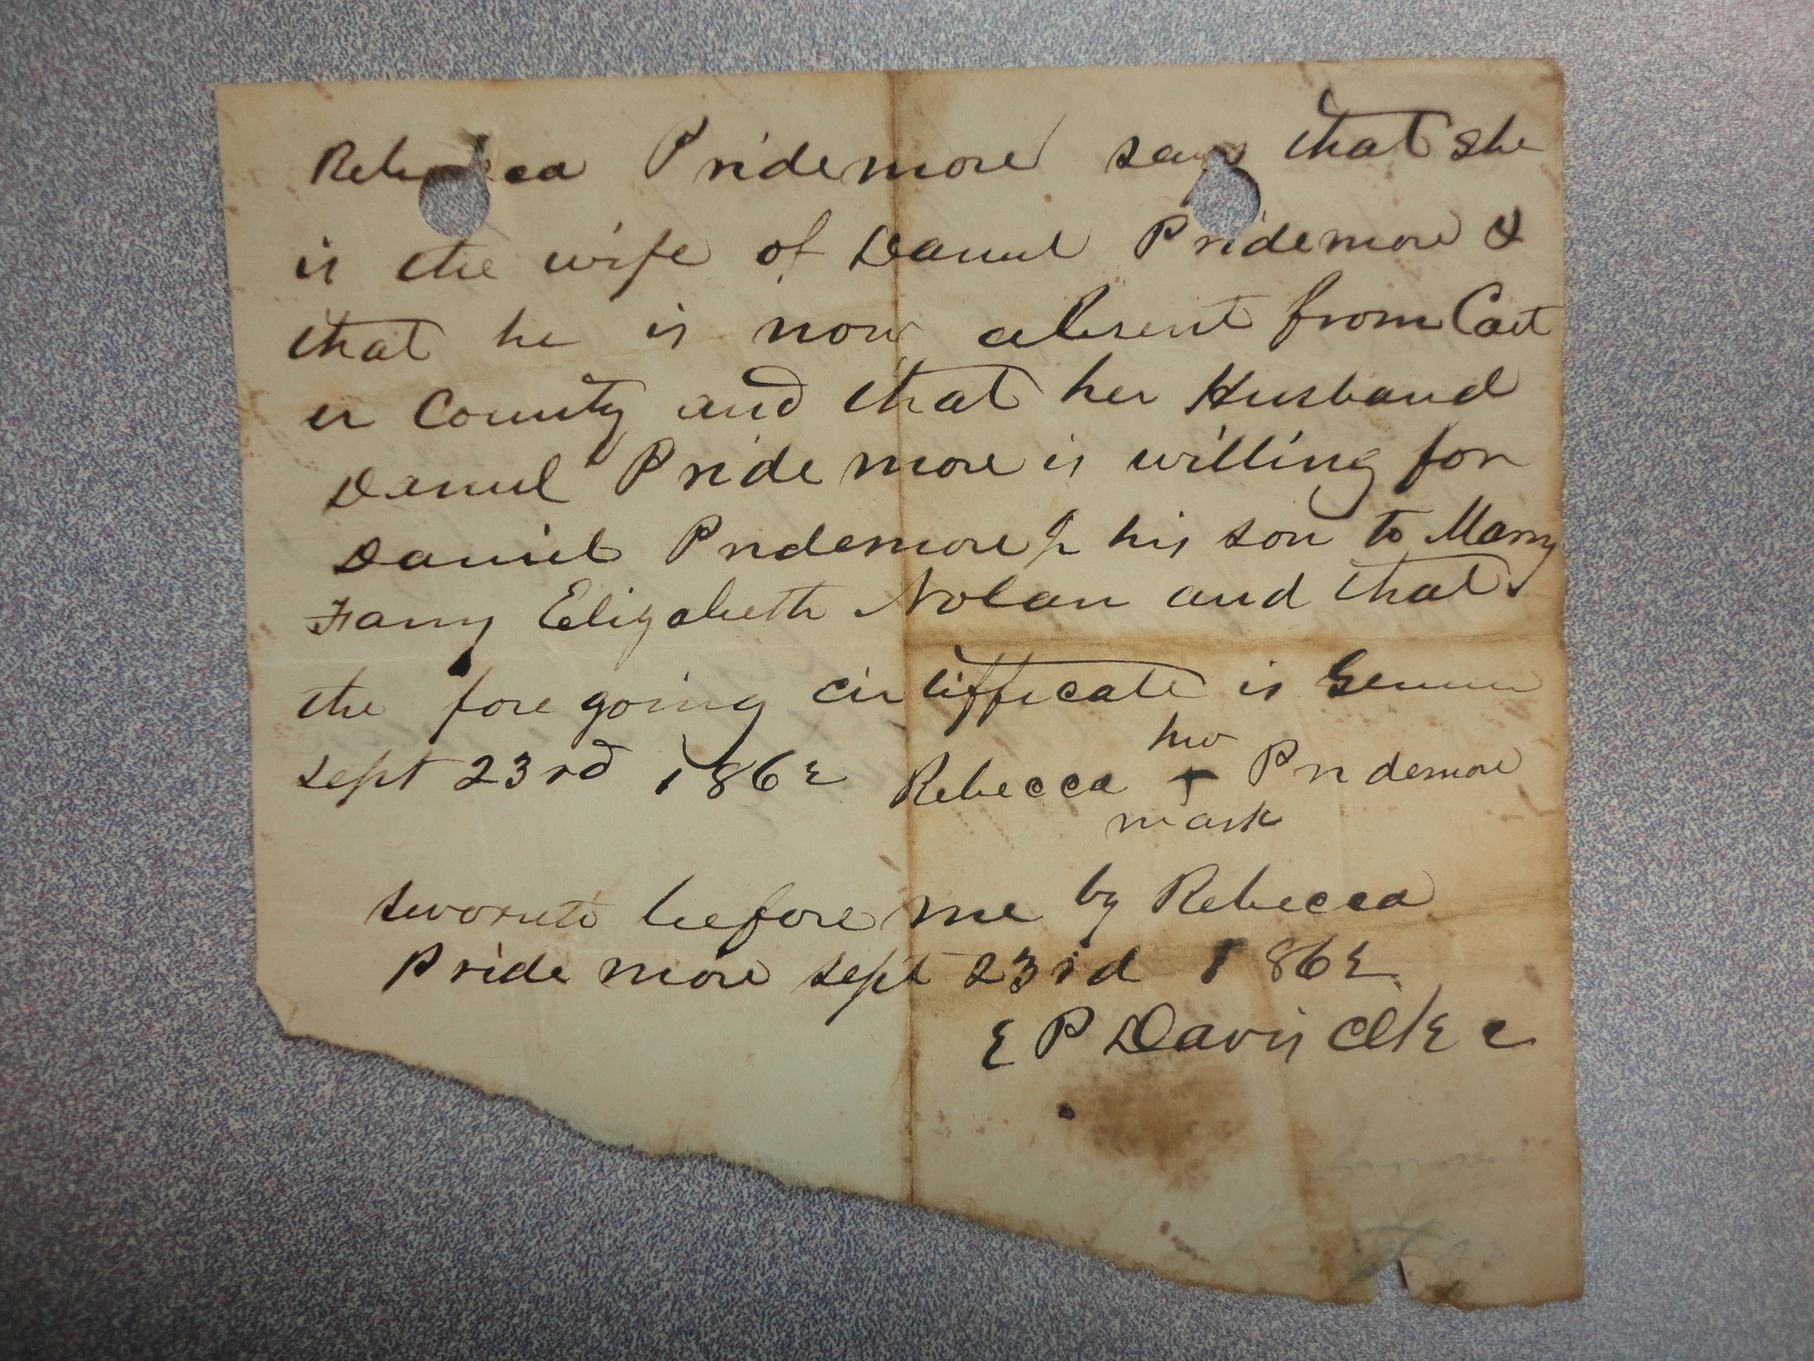 Rebecca Pridemore says that she
is the wife of Daniel Pridemore &
that he is now absent from Cart
er County and that her Husband
Daniel Pridemore is willing for
Daniel Pridemore Jr his son to Marry
Fanny Elizabeth Nolan and that
the fore going certifficate is Genuin
her
sept 23rd 1862 Rebecca + Pridemore
mark
sworn to before me by Rebecca
Pridemore sept 23rd 1862
E P Davis